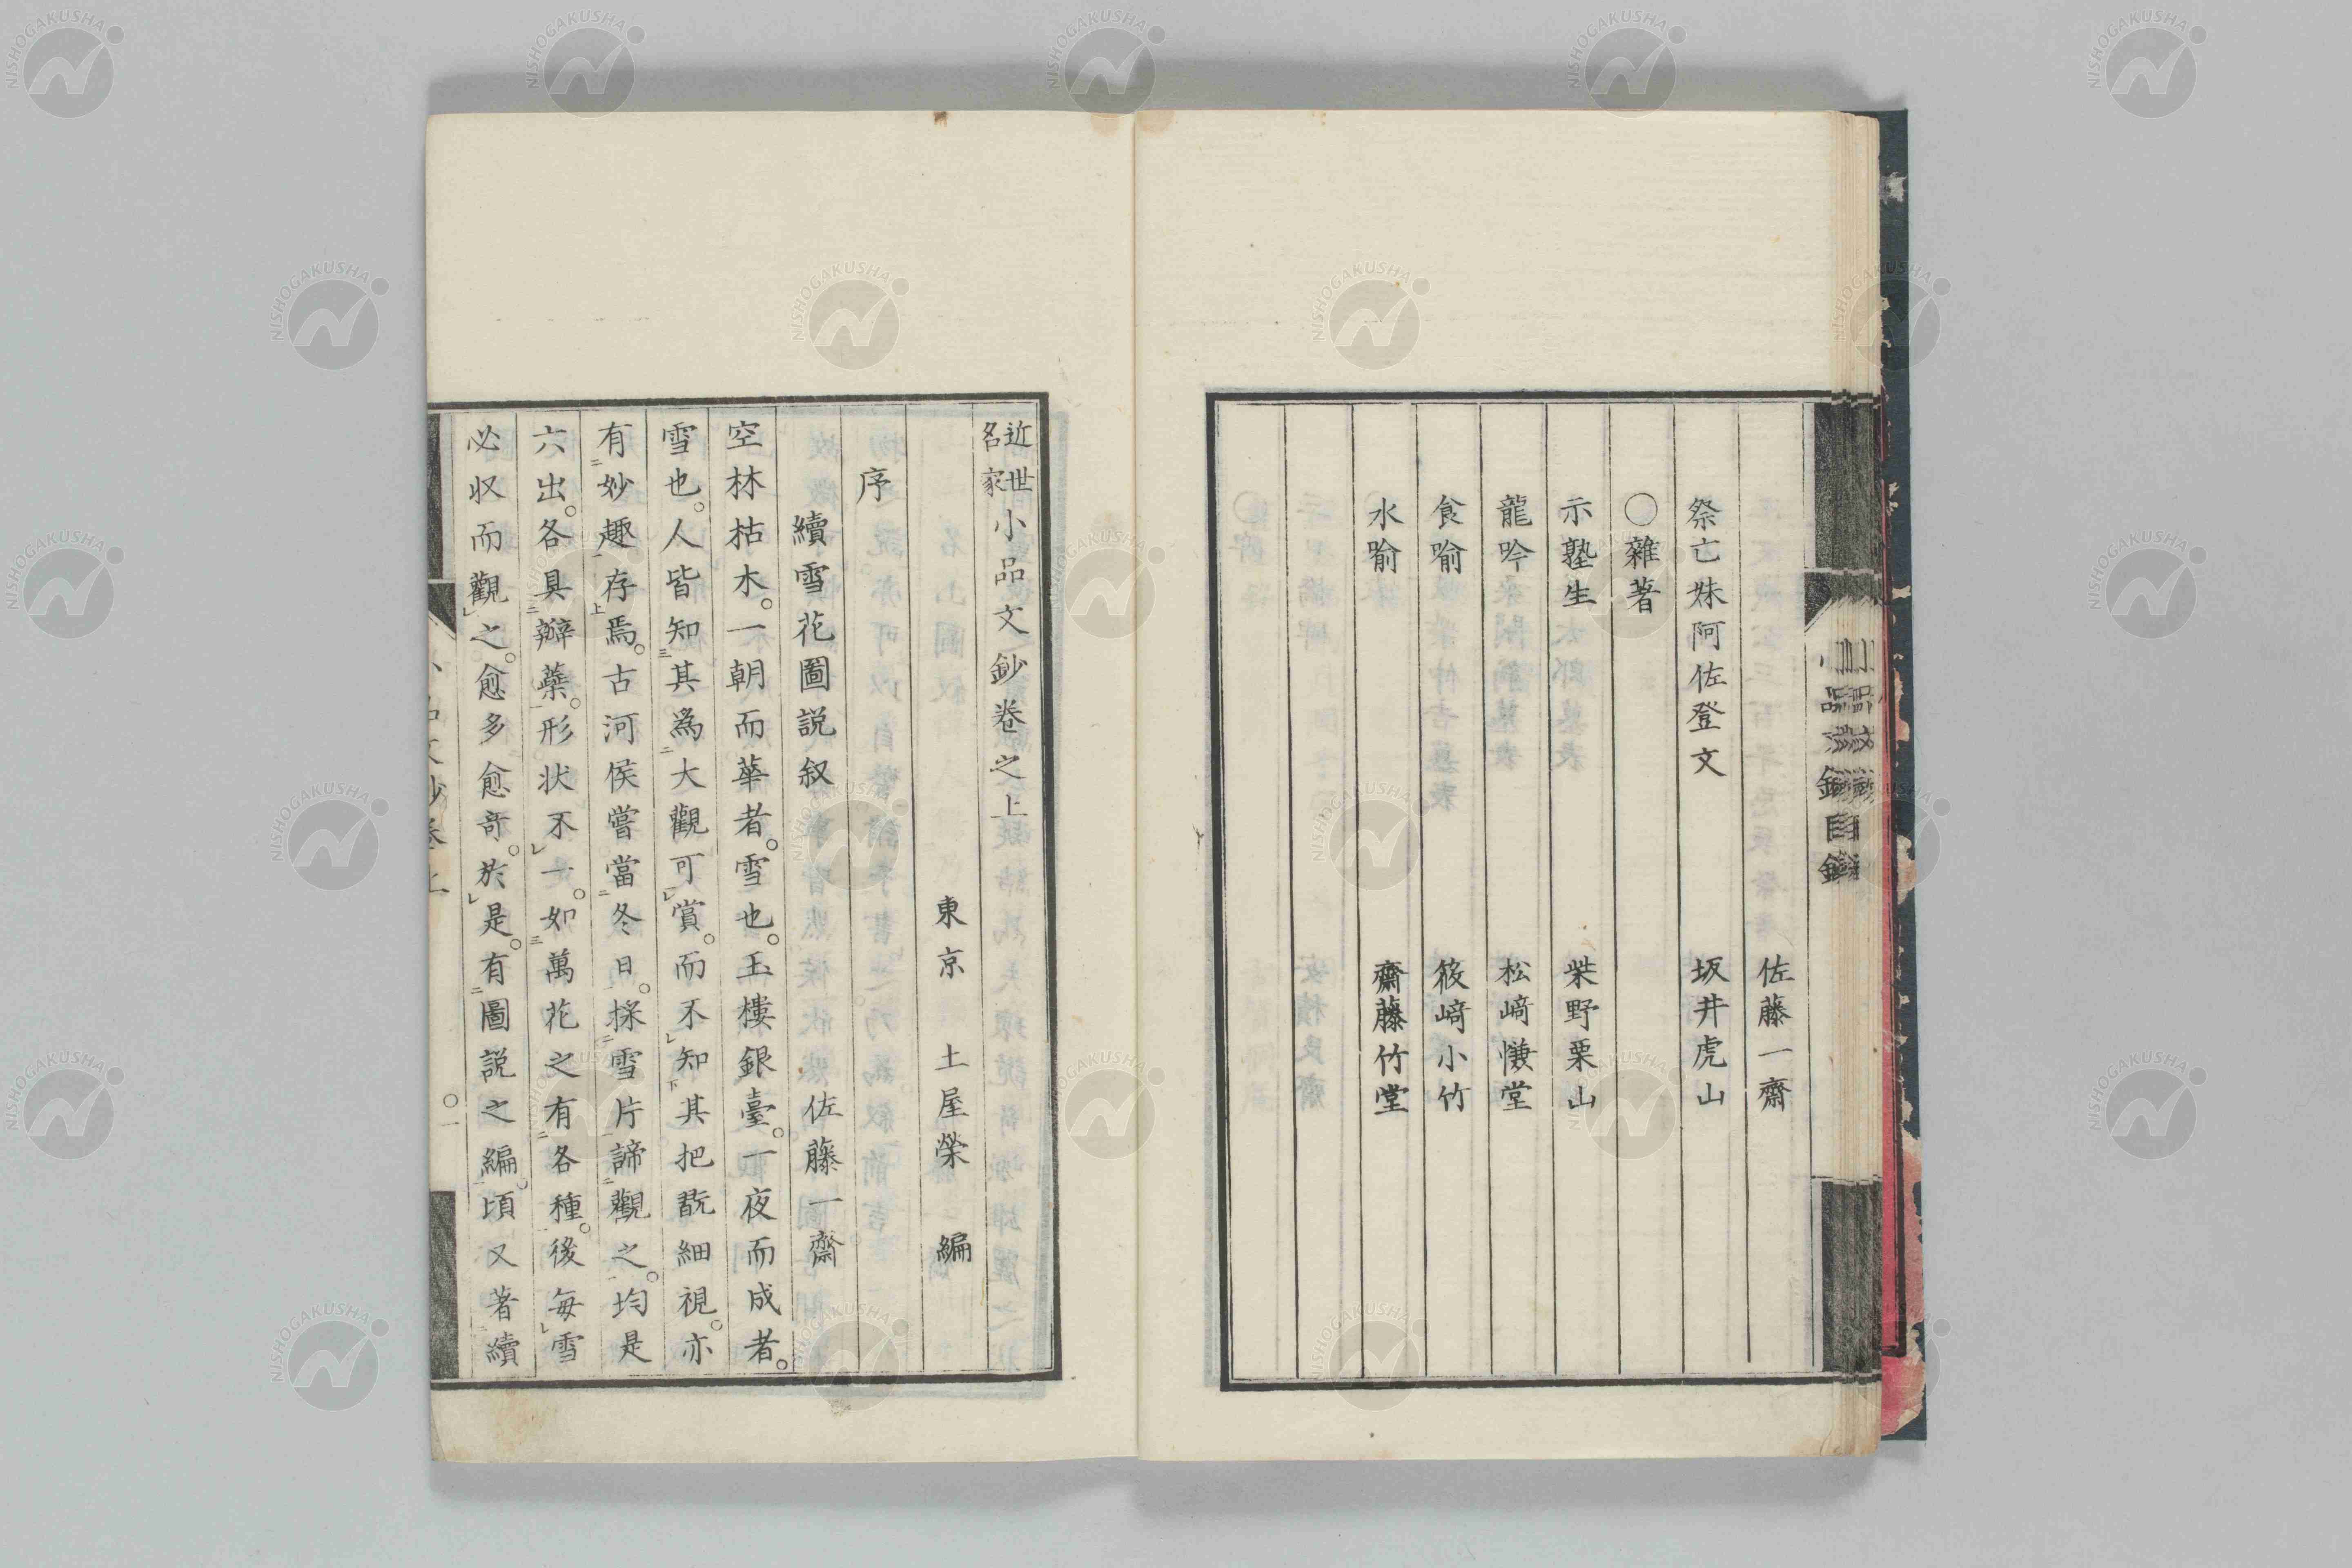 佐藤一齋
祭亡妹阿佐登文 坂井虎山
〇雜著
示塾生 柴野栗山
龍吟 松﨑慊堂
食喻 筱﨑小竹
水喻 齋藤竹堂
近世名家小品文鈔卷之上
東京 土屋榮 編
序
續雪花圖説叙 佐藤一齋
空林枯木。一朝而華者。雪也。玉樓銀臺。一夜而成者。
雪也。人皆知三其為二大觀可レ賞。而不レ知下其把翫細視。亦
有二妙趣一存上焉。古河侯嘗當二冬日一。採二雪片一諦二觀之一。均是
六出。各具三瓣蘂。形状不レ一。如三萬花之有二各種一。後每レ雪
必収而觀レ之。愈多愈奇。於レ是。有二圖説之編一。頃又著續
小品文鈔卷上 〇一
NISHOGAKUSHA